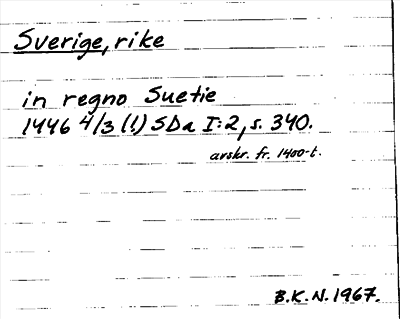 Sverige, rike
in regno Suetie
1446 4/3 (!) SDa I:2, s. 340.
avskr. fr. 1400-t.
B.K.N. 1967.